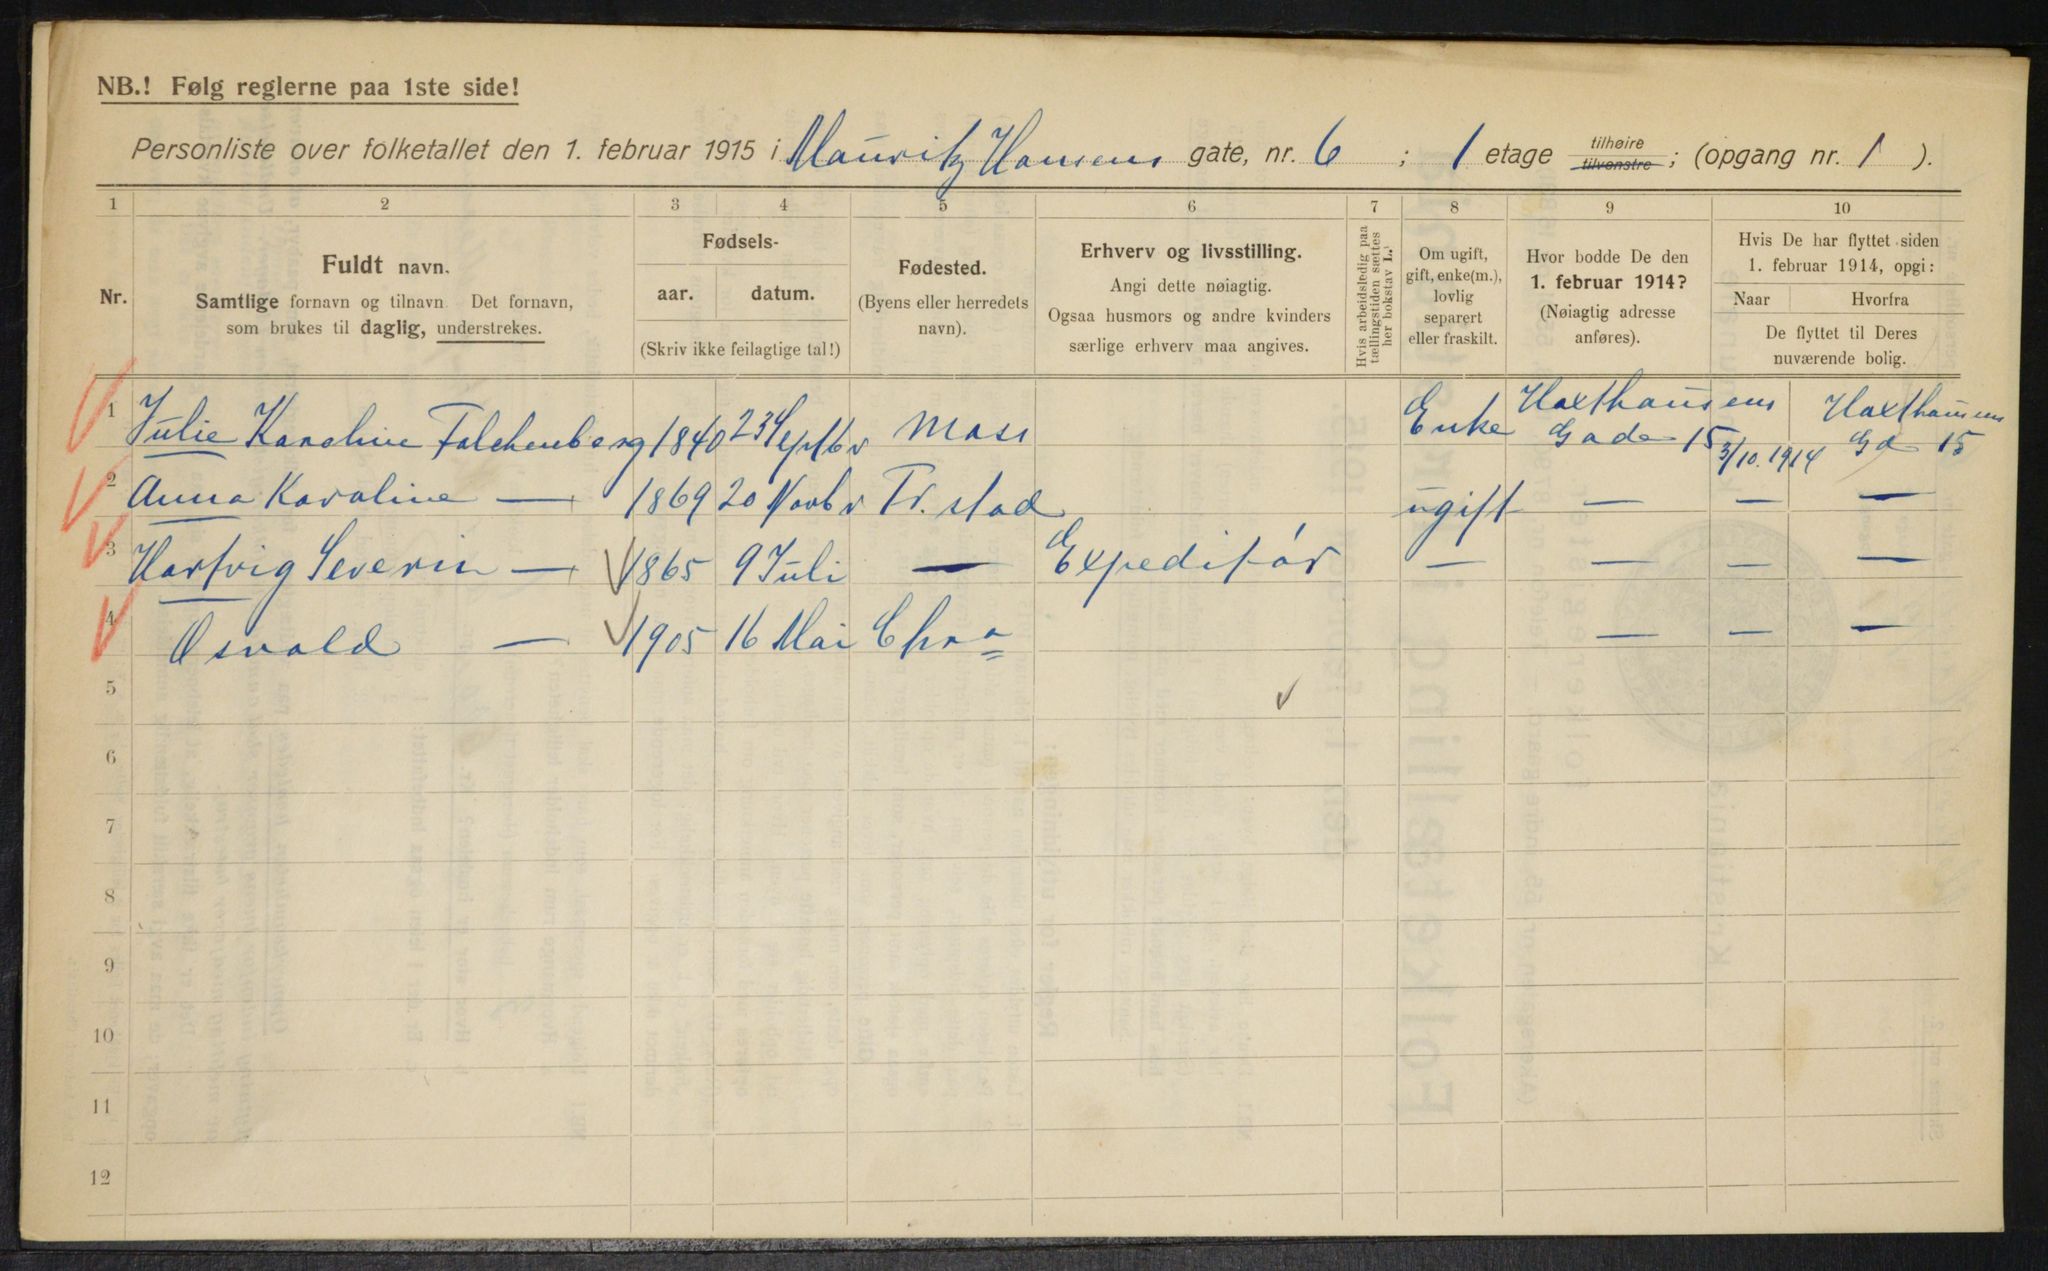 NB.! Følg reglerne paa 1ste side!
Personliste over folketallet den 1. februar 1915 i Mauritz Hansens gate, nr. 6 ; 1 etage tilhøire tilvenstre ; (opgang nr. 1 ).
1 2 3 4 5 6 7 8 9 10
Nr.
Fuldt navn.
Samtlige fornavn og tilnavn Det fornavn,
som brukes til daglig, understrekes.
Fødsels-
aar. datum.
(Skriv ikke feilagtige tal!)
Fødested.
(Byens eller herredets
navn).
Erhverv og livsstilling.
Angi dette nøiagtig.
Ogsaa husmors og andre kvinders
særlige erhverv maa angives.
Hvis arbeidsledig paa
tællingstiden sættes
her bokstav L.
Om ugift,
gift, enke(m.),
lovlig
separert
eller fraskilt.
Hvor bodde De den
1. februar 1914?
(Nøiagtig adresse
anføres).
Hvis De har flyttet siden
1. februar 1914, opgi:
Naar Hvorfra
De flyttet til Deres
nuværende bolig.
1 Julie Karoline Falchenberg 1840 23 Septbr Moss Enke Haxthausens Gade 15 3/10.1914 Haxthausens Gd 15
2 Anna Karoline — 1869 20 Novbr Fr. stad ugift — — —
3 Hartvig Severin — 1865 9 Juli — Expeditør — — — —
4 Osvald — 1905 16 Mai Chra — — —
5
6
7
8
9
10
11
12